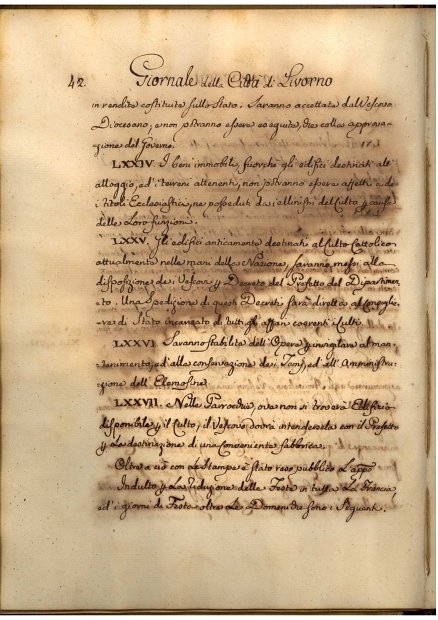 42. Giornale della Città di Livorno
in rendite costituite sullo Stato. Saranno accettate dal Vescovo
Diocesano, e non potranno essere eseguite, che colla approva-
zione del Governo.
LXXIV. I beni immobili, fuorchè gli edifici destinati all'
alloggio, ed i terreni attenenti, non potranno essere affetti a de
i titoli Ecclesiastici, ne posseduti dai Ministri del Culto p causa
delle Loro funzioni.
LXXV. Gli edifici anticamente destinati al Culto Cattolico
attualmente nelle mani della Nazione, saranno messi alla
disposizione dei Vescovi p Decreto del Prefetto del Dipartimen-
to. Una spedizione di questi Decreti sarà diretta al Consiglie-
re di Stato incaricato di tutti gli affari coerenti i Culti.
LXXVI. Saranno stabilite dell' Opere p invigilare al man-
tenimento, ed alla conservazione dei Tempj, ed all' Amministra-
zione dell' Elemosine.
LXXVII. Nelle Parrochie, ove non si troverà Edificio
disponibile p il Culto, il Vescovo dovrà intendersela con il Prefetto
p La destinazione di una conveniente fabbrica.
Oltre a ciò con Le Stampe è stato reso pubblico L'appo
Indulto p La riduzione delle Feste in tutta La Francia,
ed i giorni di Festa oltre Le Domeniche sono i seguenti.